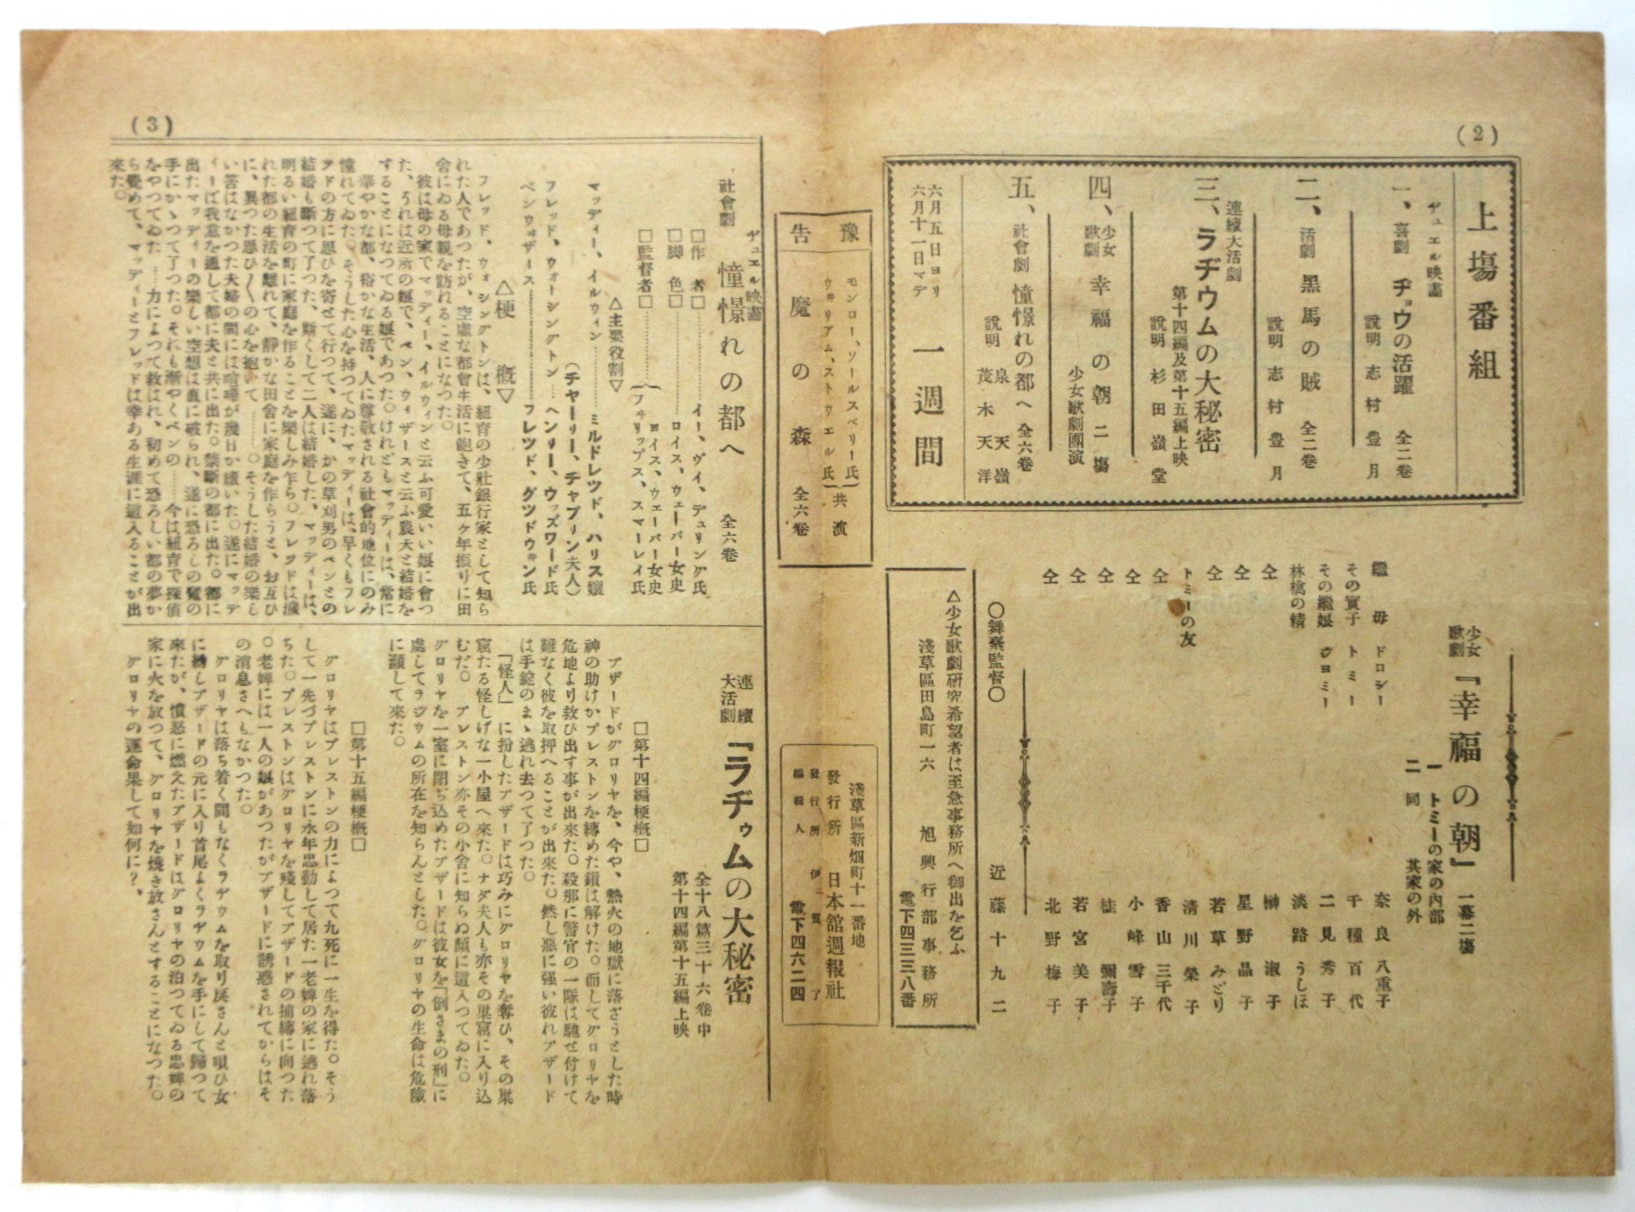 (2)
上塲番組
ヂュエル映畵
一、喜劇 ヂョウの活躍 全二卷
說明 志村豊月
二、活劇 黑馬の賊 全二卷
說明 志村豊月
連續大活劇
三、ラヂウムの大秘密
第十四編及第十五編上映
說明 杉田嶺堂
四、少女歌劇 幸福の朝 二塲
少女歌劇團演
五、社會劇 憧憬れの都へ 全六卷
說明 泉天嶺
茂木天洋
六月五日ヨリ
六月十一日マデ 一週間
少女歌劇『幸福の朝』 一幕二塲
一 トミーの家の內部
二 同 其家の外
繼母 ドロシー 奈良八重子
その實子 トミー 千種百代
その繼娘 ヴヨミー 二見秀子
林檎の精 淡路うしほ
仝 榊淑子
仝 星野晶子
仝 若草みどり
トミーの友 清川榮子
仝 香山三千代
仝 小峰雪子
仝 桂彌壽子
仝 若宮美子
仝 北野梅子
〇舞臺監督〇 近藤十九二
△少女歌劇研究希望者は至急事務所へ御出を乞ふ
淺草區田島町一六 旭興行部事務所
電下四三三八番
豫告
モンロー、ソールスベリー氏
ウヰリアム、ストウエル氏 共演
魔の森 全六卷
淺草區新畑町十一番地
發行所 日本舘週報社
發行所
編輯人 伊賀了
電下四六二四
(3)
ヂュエル映畵
社會劇 憧憬れの都へ 全六卷
□作者□……イー、ヴイ、デュリング氏
□脚色□……ロイス、ウェーバー女史
□監督者□……ロイス、ウェーバー女史
フヰリップス、スマーレイ氏
△主要役割▽
マッディー、イルウィン……ミルドレツド、ハリス孃
(チャーリー、チャプリン夫人)
フレッド、ウォーシングトン……ヘンリー、ウッズワード氏
ベンウィザース……フレツド、グツドウヰン氏
△梗概▽
フレッド、ウォシングトンは、紐育の少壯銀行家として知ら
れた人であつたが、空虛な都會生活に飽きて、五ヶ年振りに田
舍にゐる母親を訪れることになつた。
彼は母の家でマッディー、イルウィンと云ふ可愛いい娘に會つ
た、うれは近所の娘で、ベン、ウィザースと云ふ農夫と結婚を
することになつてゐる娘であつた。けれどもマッディーは、常に
華やかな都、俗かな生活、人に尊敬される社會的地位にのみ
憧れてゐた。そうした心を持つてゐたマッディーは、早くもフレ
ツドの方に思ひを寄せて行つて、遂に、かの草刈男のベンとの
結婚も斷つて了つた、斯くして二人は結婚した、マッディーは、
明るい紐育の町に家庭を作ることを樂しみ乍ら。フレツドは穢
れた都の生活を離れて、靜かな田舍に家庭を作らうと、お互ひ
に、異つた思ひ〱の心を抱いて……。そうした結婚の樂し
い筈はなかつた夫婦の間には喧嘩が幾日か續いた。遂にマッデ
ィーは我意を通して都に夫と共に出た。禁斷の都に出た。都に
出たマッディーの樂しい空想は直に破られ、遂に恐ろしの魔の
手にかゝつて了つた。それも漸やくベンの……今は紐育で探偵
をやつてゐた……力によつて救はれ、初めて恐ろしい都の夢か
ら覺めて、マッディーとフレッドは幸ある生涯に這入ることが出
來た。
連續大活劇 『ラヂゥムの大秘密
全十八篇三十六卷中
第十四編第十五編上映
□第十四編梗槪□
ブザードがグロリヤを、今や、熱火の地獄に落ざうとした時
神の助けかプレストンを縛めた鎖は解けた。而してグロリヤを
危地より救ひ出す事が出來た。殺那に警官の一隊は馳せ付けて
難なく彼を取押へることが出來た。然し惡に强い彼れブザード
は手錠のまゝ逃れ去つて了つた。
「怪人」に扮したブザードは巧みにグロリヤを奪ひ、その巢
窟たる怪しげな一小屋へ來た。ナダ夫人も亦その巢窟に入り込
むだ。プレストン亦その小舍に知らぬ顔に這入つてゐた。
グロリヤを一室に閉ぢ込めたブザードは彼女を「倒さまの刑」に
處してラヂウムの所在を知らんとした。グロリヤの生命は危險
に瀕して來た。
□第十五編梗槪□
グロリヤはプレストンの力によつて九死に一生を得た。そう
して一先づプレストンに永年忠勤して居た一老婢の家に逃れ落
ちた。プレストンはグロリヤを殘してブザードの捕縛に向つた
。老婢には一人の娘があつたがブザードに誘惑されてからはそ
の消息さへもなかつた。
グロリヤは落ち着く間もなくラヂウムを取り戾さんと唄ひ女
に扮しブザードの元に入り首尾よくラヂウムを手にして歸つて
來たが、憤怒に燃えたブザードはグロリヤの泊つてゐる忠婢の
家に火を放つて、グロリヤを燒き放さんとすることになつた。
グロリヤの運命果して如何に?、